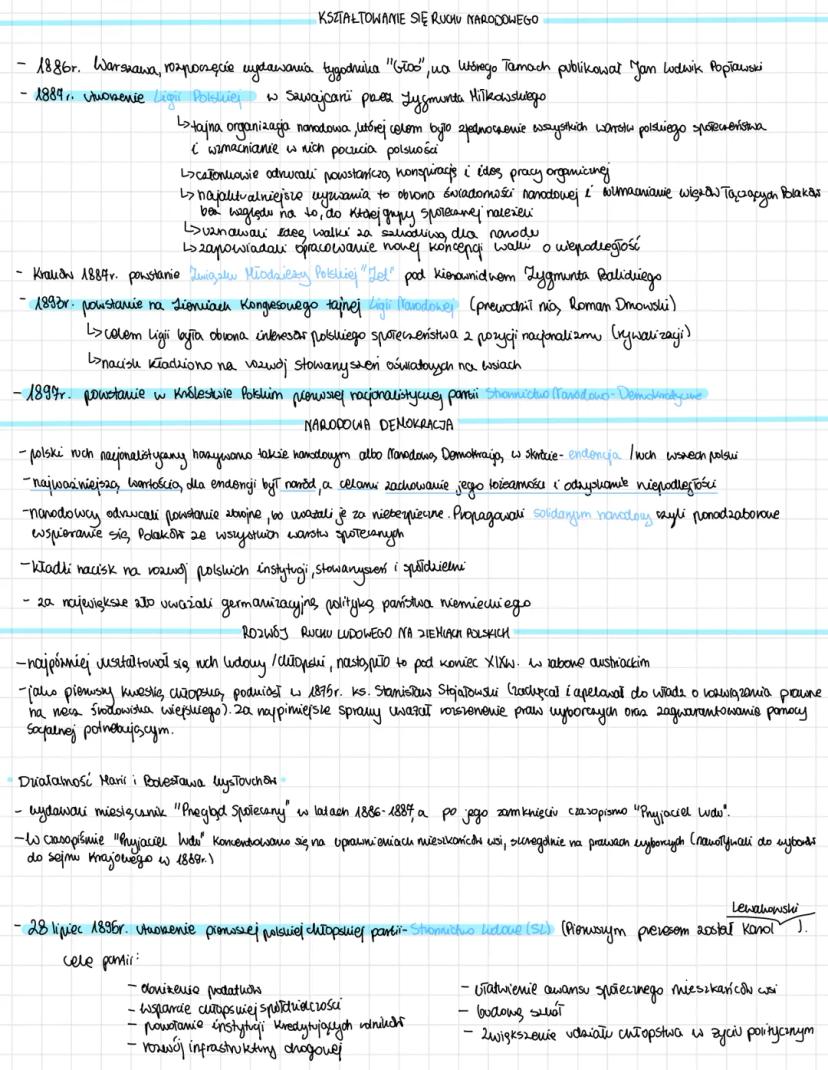 KSZTAŁTOWANIE SIĘ RUCHU NARODOWEGO
- 1886r. Warszawa, rozpoczęcie wydawania tygodnika "Głos", na którego łamach publikował Jan Ludwik Popławski
- 1887r. utworzenie Ligii Polskiej w Szwajcarii przez Zygmunta Miłkowskiego
↳ tajna organizacja narodowa, której celem było zjednoczenie wszystkich warstw polskiego społeczeństwa
i wzmacnianie w nich poczucia polskości
↳ członkowie odrzucali powstańczą konspirację i ideę pracy organicznej
↳ najaktualniejsze wyzwania to obrona świadomości narodowej i wzmacnianie więzów łączących Polaków
bez względu na to, do której grupy społecznej należeli
↳ uznawali ideę walki za szkodliwą dla narodu
↳ zapowiadali opracowanie nowej koncepcji walki o niepodległość
- Kraków 1887r. powstanie Związku Młodzieży Polskiej "Zet" pod kierownictwem Zygmunta Balickiego
- 1893r. powstanie na ziemiach Kongresowego tajnej Ligii Narodowej (przewodził nią Roman Dmowski)
↳ celem Ligii była obrona interesów polskiego społeczeństwa z pozycji nacjonalizmu (rywalizacji)
↳ nacisk kładziono na rozwój stowarzyszeń oświatowych na wsiach
- 1897r. powstanie w Królestwie Polskim pierwszej nacjonalistycznej partii Stronnictwo Narodowo-Demokratyczne
NARODOWA DEMOKRACJA
- polski ruch nacjonalistyczny nazywano także narodowym albo Narodową Demokracją, w skrócie - endencja / ruch wszechpolski
- najważniejszą wartością dla endencji był naród, a celami zachowanie jego tożsamości i odzyskanie niepodległości
- narodowcy odrzucali powstanie zbrojne, bo uważali je za niebezpieczne. Propagowali solidaryzm narodowy czyli ponadzaborowe
wspieranie się Polaków ze wszystkich warstw społecznych
- kładli nacisk na rozwój polskich instytucji, stowarzyszeń i spółdzielni
- za największe zło uważali germanizacyjną politykę państwa niemieckiego
ROZWÓJ RUCHU LUDOWEGO NA ZIEMIACH POLSKICH
- najpóźniej ukształtował się ruch ludowy / chłopski, nastąpiło to pod koniec XIXw. w zaborze austriackim
- jako pierwszy kwestię chłopską podniósł w 1875r. ks. Stanisław Stojałowski (zachęcał i apelował do władz o rozwiązania prawne
na rzecz środowiska wiejskiego). Za najpilniejsze sprawy uważał rozszerzenie praw wyborczych oraz zagwarantowanie pomocy
socjalnej potrzebującym.
Działalność Marii i Bolesława Wysłouchów
- wydawali miesięcznik "Przegląd Społeczny" w latach 1886-1887, a po jego zamknięciu czasopismo "Przyjaciel Ludu".
- w czasopiśmie "Przyjaciel Ludu" koncentrowano się na uprawnieniach mieszkańców wsi, szczególnie na prawach wyborczych (nawoływali do wyborów
do sejmu krajowego w 1889r.)
Lewakowski
- 28 lipiec 1895r. utworzenie pierwszej polskiej chłopskiej partii - Stronnictwo Ludowe (SL) (Pierwszym prezesem został Karol ).
cele partii:
- obniżenie podatków
- wsparcie chłopskiej spółdzielczości
- powołanie instytucji kredytujących rolników
- rozwój infrastruktury drogowej
- ułatwienie awansu społecznego mieszkańców wsi
- budowę szkół
- zwiększenie udziału chłopstwa w życiu politycznym